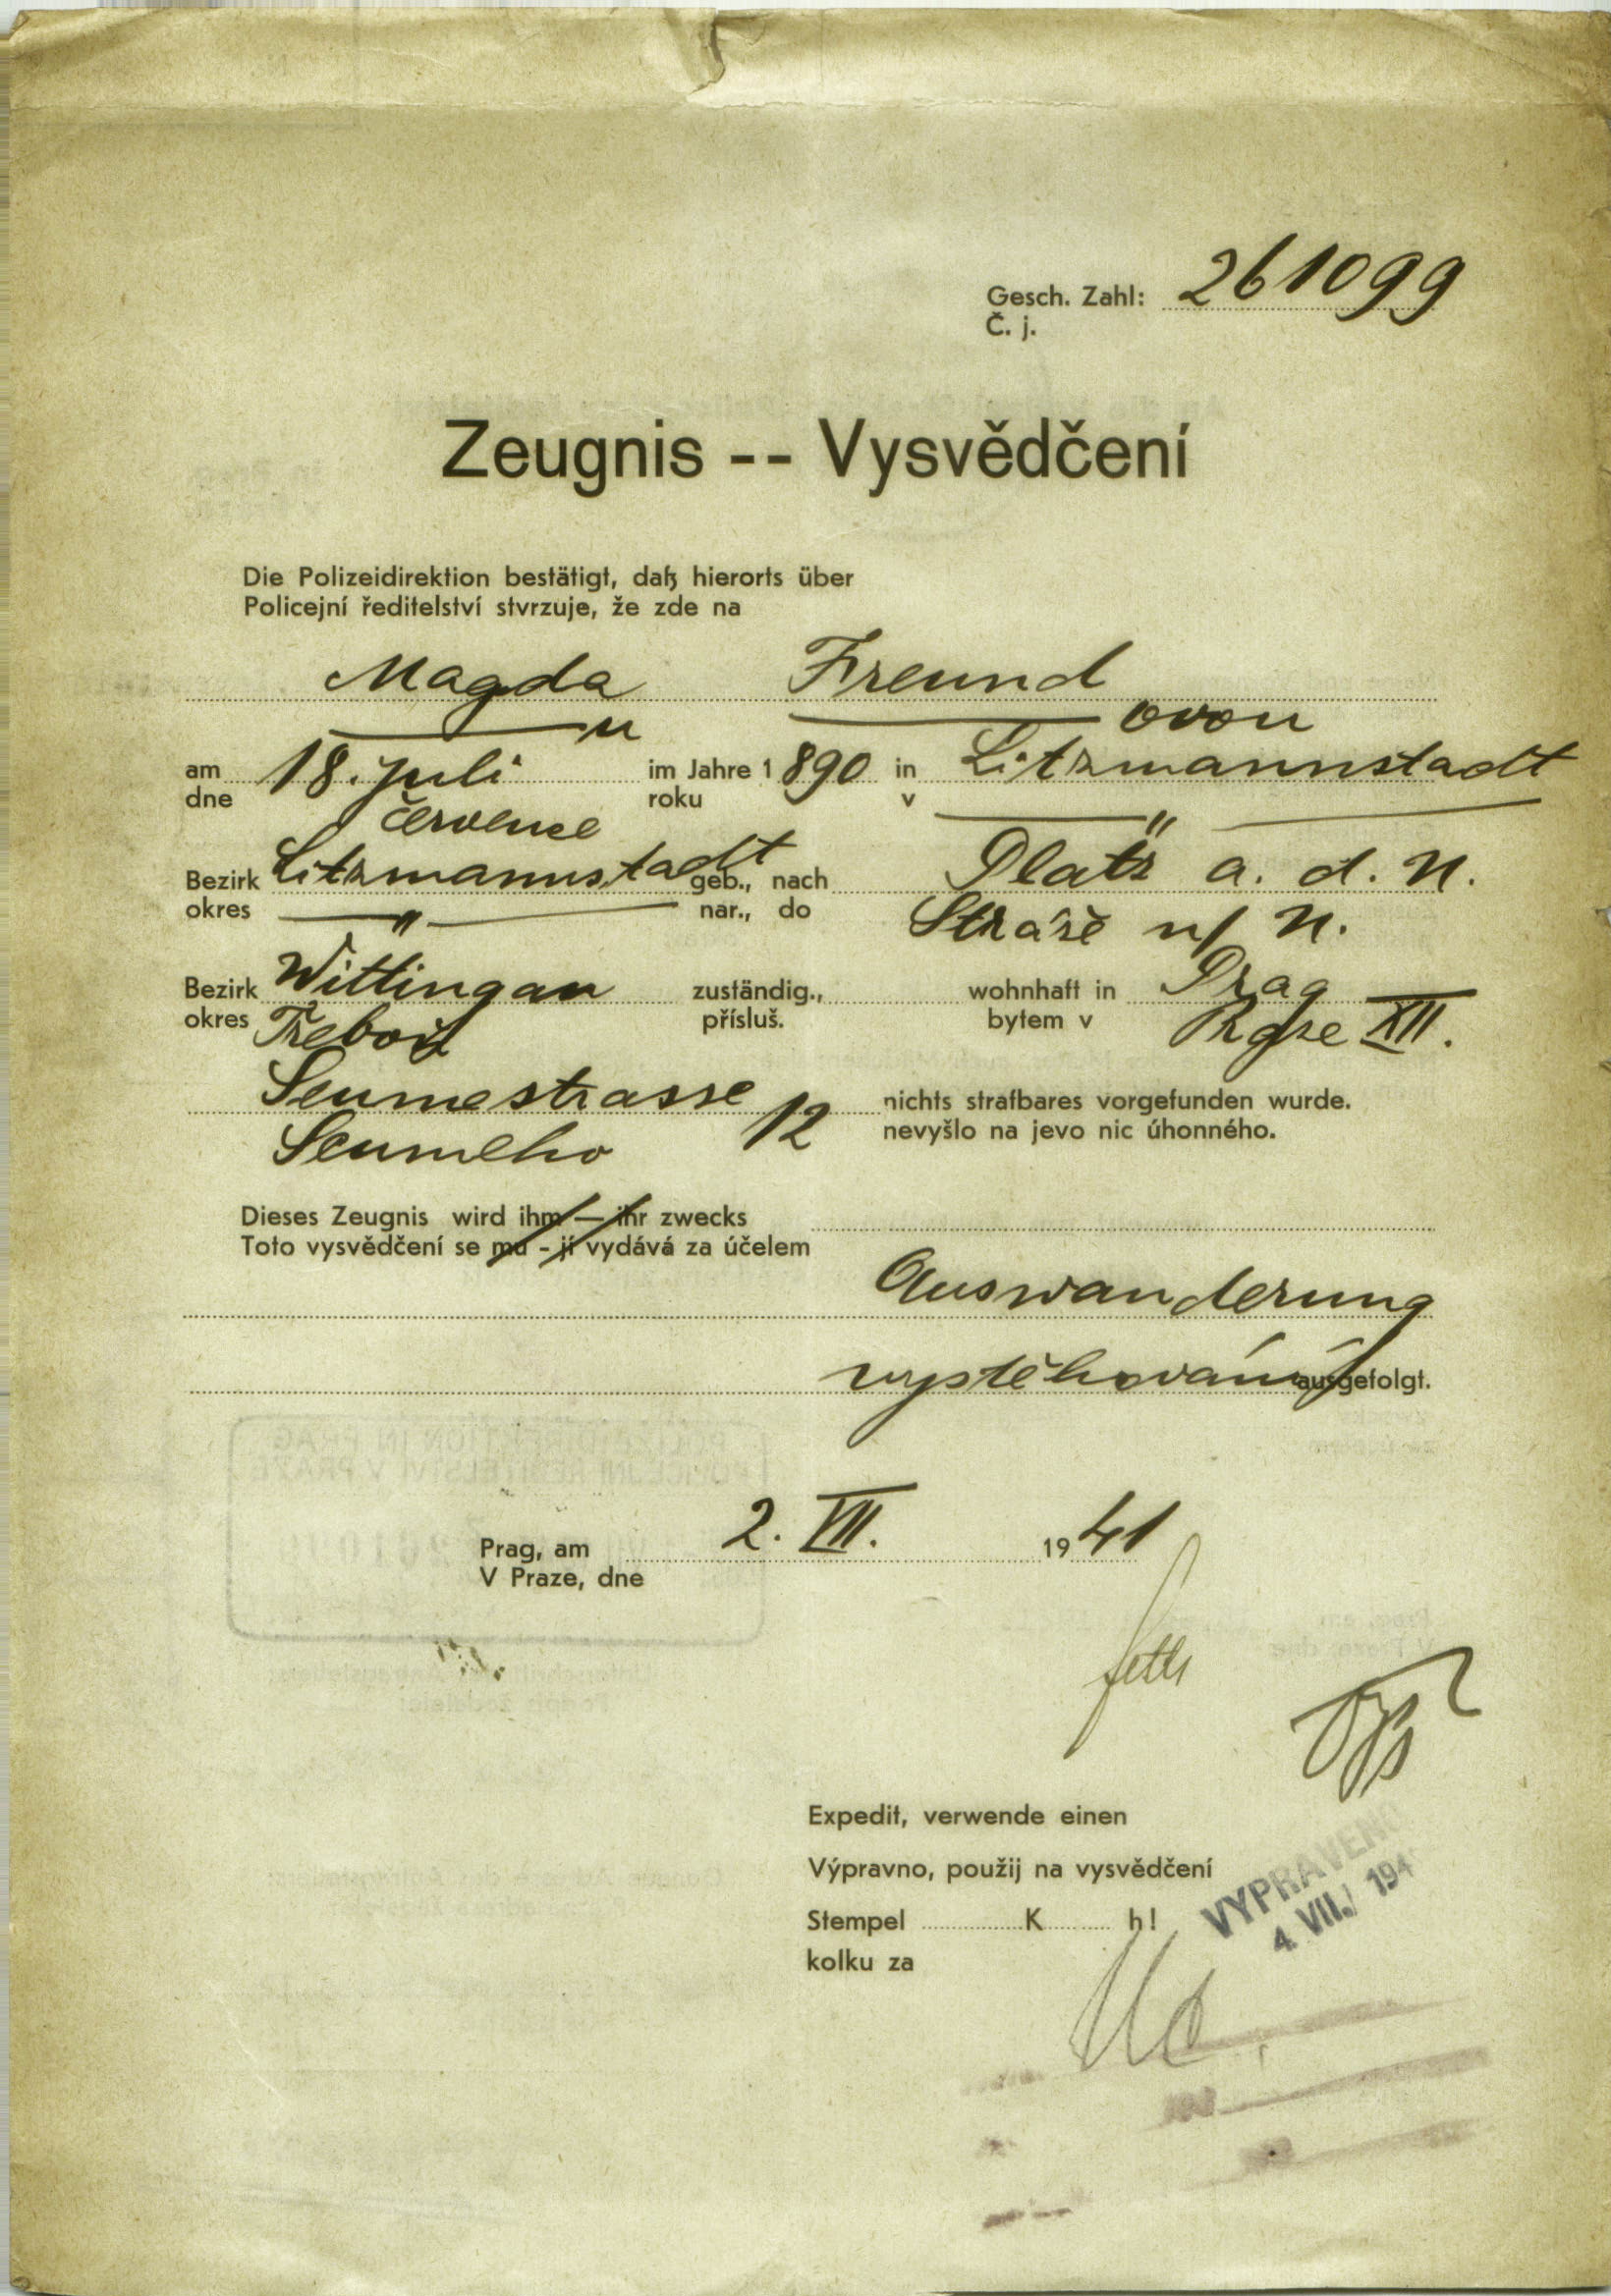 Gesch. Zahl: 261099
Č. j.
Zeugnis -- Vysvědčení
Die Polizeidirektion bestätigt, daß hierorts über
Policejní ředitelství stvrzuje, že zde na
Magda Freund
u ovou
am 18. Juli im Jahre 1 890 in Litzmannstadt
dne července roku v "
Bezirk Litzmannstadt geb., nach Platz a. d. N.
okres " nar., do Stráže n/ N.
Bezirk Wittingau zuständig., wohnhaft in Prag
okres Třeboň přísluš. bytem v Praze XII.
Seumestrasse 12 nichts strafbares vorgefunden wurde.
Seumeho nevyšlo na jevo nic úhonného.
Dieses Zeugnis wird ihm — ihr zwecks
Toto vysvědčení se mu - jí vydává za účelem
Auswanderung
vystěhování ausgefolgt.
Prag, am 2. VII. 1941
V Praze, dne
Expedit, verwende einen
Výpravno, použij na vysvědčení
Stempel K h!
kolku za
VYPRAVENO
4. VII. 194